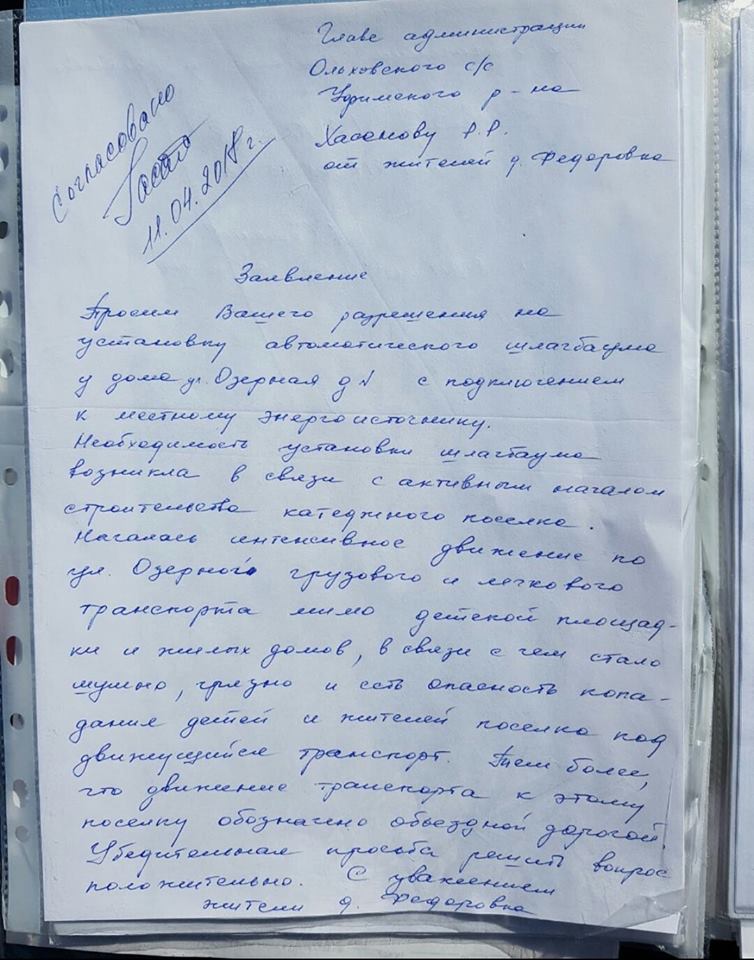 Главе администрации
Ольховского с/с
Уфимского р-на
Хасанову Р.Р.
от жителей д. Федоровка
Согласовано
11.04.2018 г.
Заявление
Просим Вашего разрешения на
установку автоматического шлагбаума
у дома ул. Озерная д 1 с подключением
к местному энергоисточнику.
Необходимость установки шлагбаума
возникла в связи с активным началом
строительства катеджного поселка.
Началась интенсивное движение по
ул. Озерной грузового и легкового
транспорта мимо детской площад-
ки и жилых домов, в связи с чем стало
шумно, грязно и есть опасность попа-
дания детей и жителей поселка под
движущийся транспорт. Тем более,
что движение транспорта к этому
поселку обозначено объездной дорогой.
Убедительная просьба решить вопрос
положительно. С уважением
жители д. Федоровка